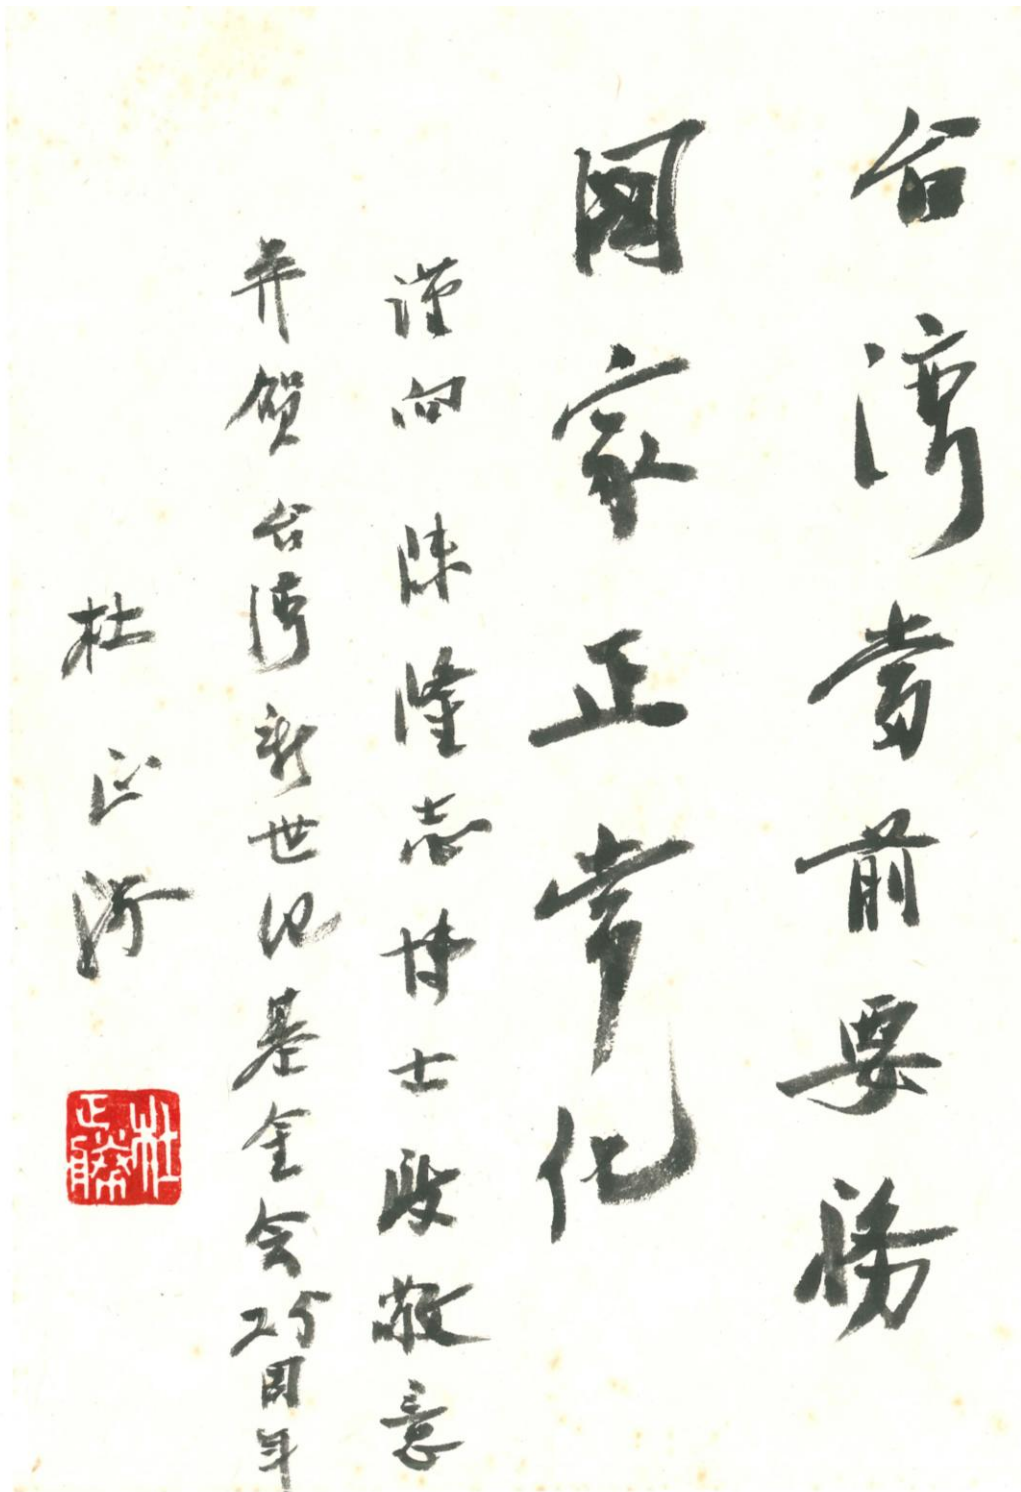 台灣當前要務
國家正常化
謹向 陳隆志博士致敬意
并賀 台灣新世紀基金会25周年
杜正勝
杜正勝